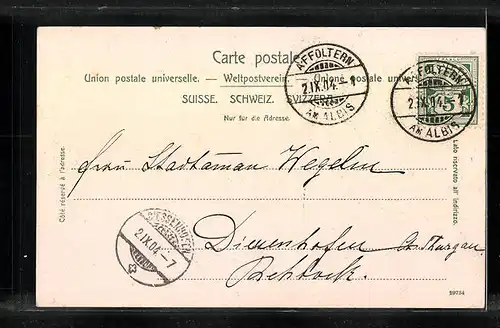 Carte postale.
Union postale universelle. — Weltpostverein. — Unione postale universale.
SUISSE. SCHWEIZ. SVIZZERA.
Nur für die Adresse.
AFFOLTERN
2.IX.04. 1
AM ALBIS
AFFOLTERN
2.IX.04. 1
AM ALBIS
5
Côté réservé à l'adresse.
Lato riservato all' indirizzo.
Frau Stadtaman Wegelin
DIESSENHOFEN
2.IX.04.-7
Diessenhofen Ct. Thurgau